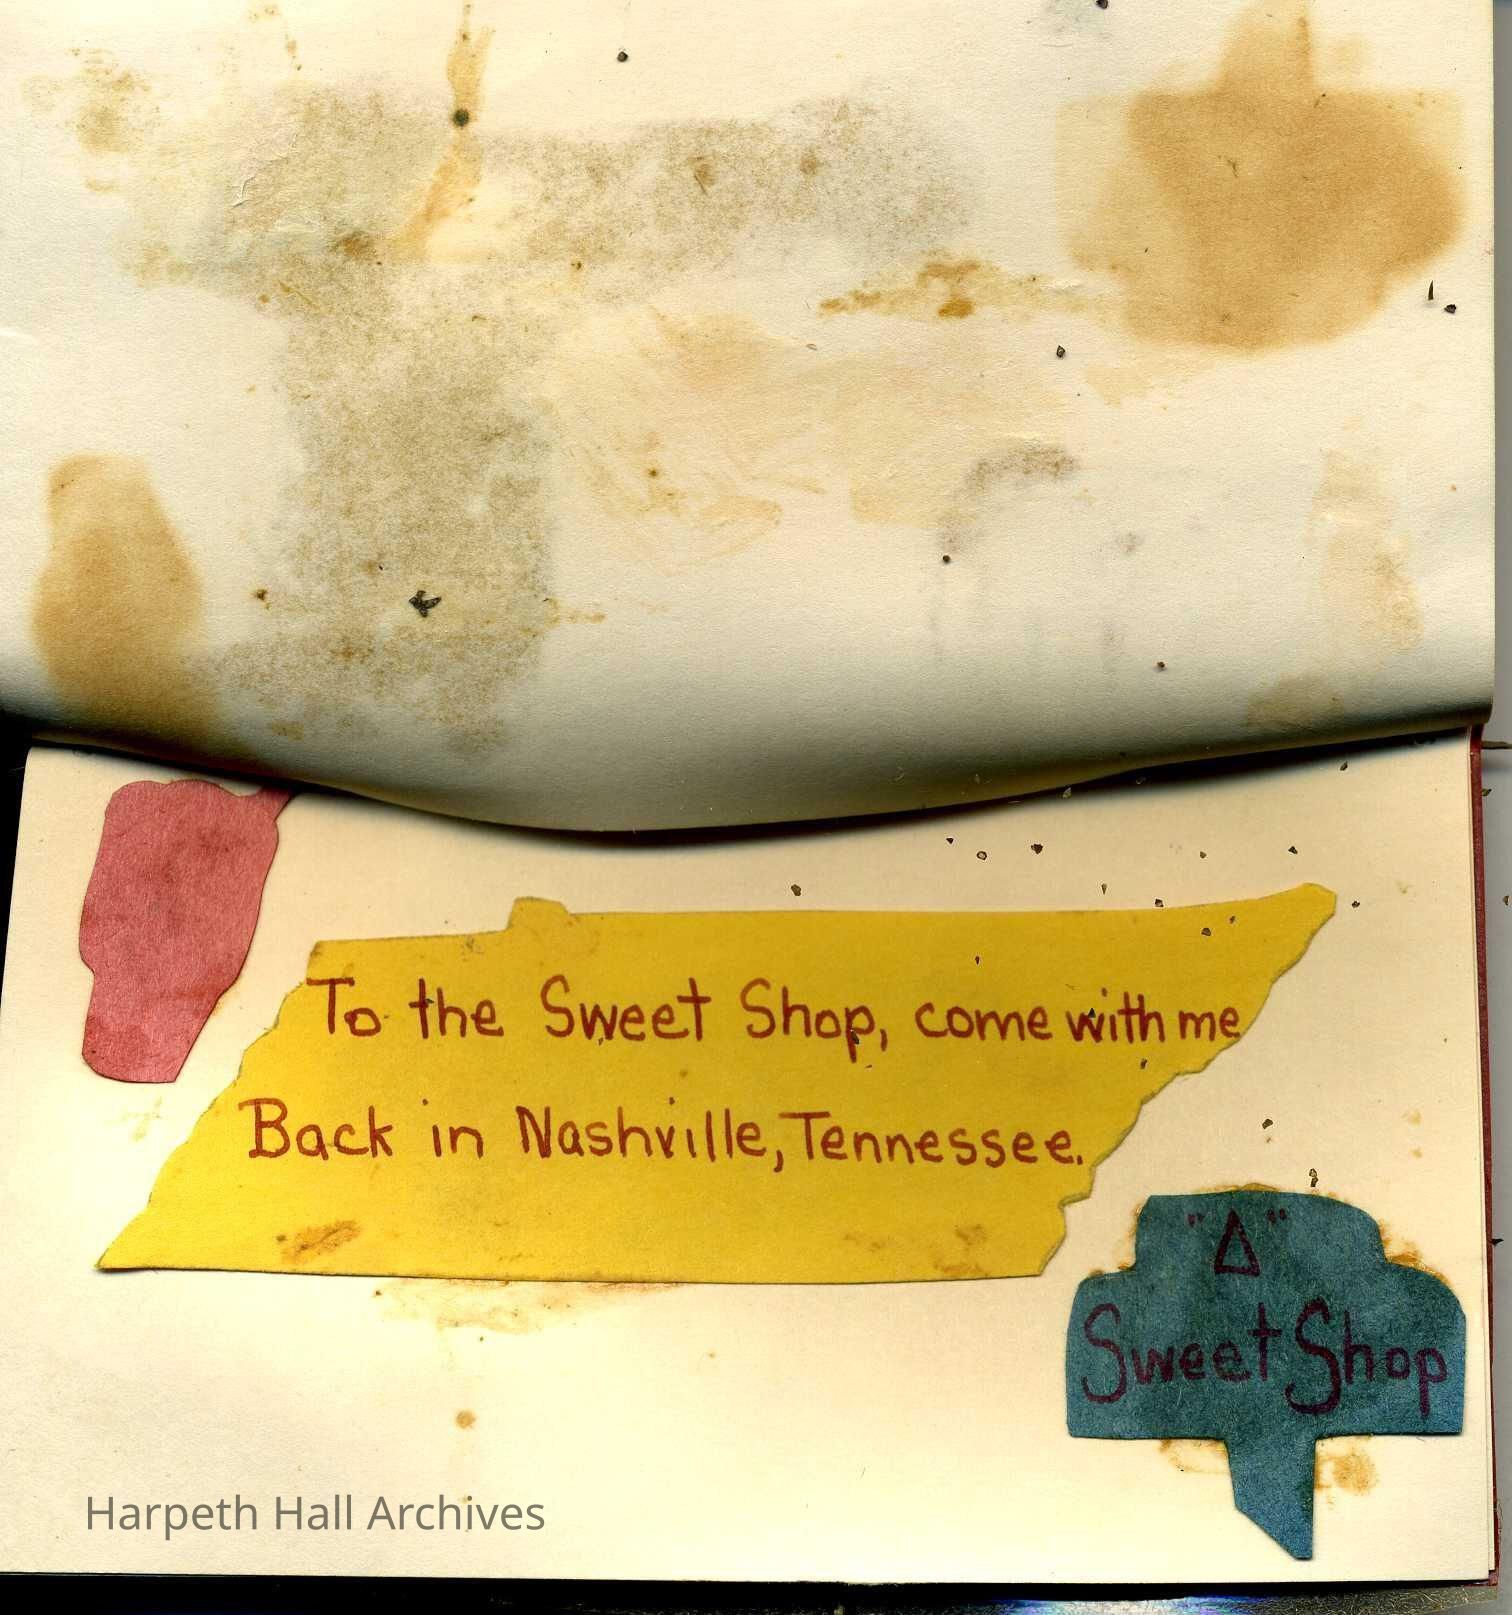 To the Sweet Shop, come with me
Back in Nashville, Tennessee.
"Δ"
Sweet Shop
Harpeth Hall Archives